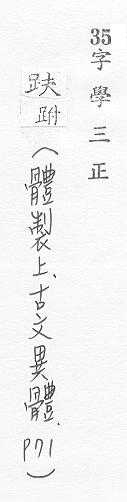 35字學三正
趺
跗
（體製上、古文異體. P71）